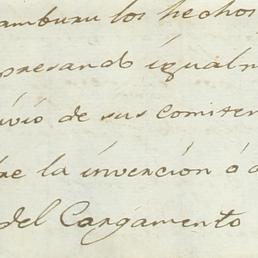 amburu los hechos
presando igualm
ivio de sus comiten
re la invención ó o
del Cargamento